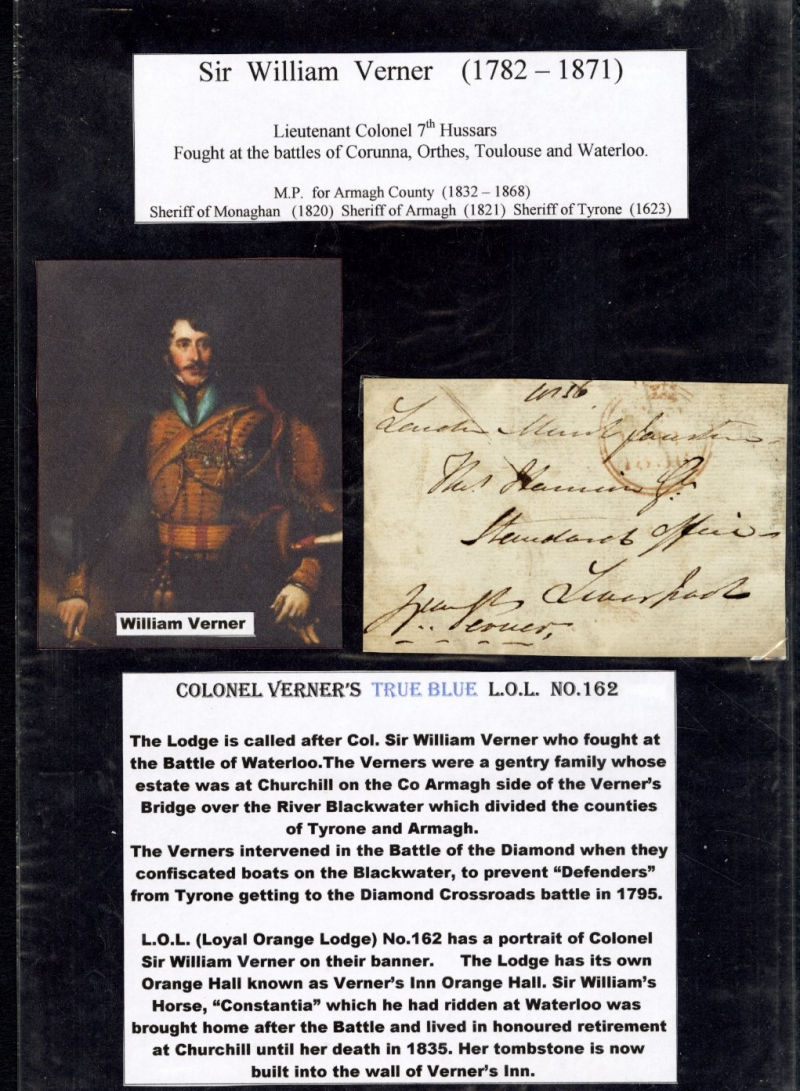 Sir William Verner (1782 – 1871)
Lieutenant Colonel 7th Hussars
Fought at the battles of Corunna, Orthes, Toulouse and Waterloo.
M.P. for Armagh County (1832 – 1868)
Sheriff of Monaghan (1820) Sheriff of Armagh (1821) Sheriff of Tyrone (1623)
William Verner
London
Standard Office
Liverpool
Verner
COLONEL VERNER'S TRUE BLUE L.O.L. NO.162
The Lodge is called after Col. Sir William Verner who fought at
the Battle of Waterloo.The Verners were a gentry family whose
estate was at Churchill on the Co Armagh side of the Verner's
Bridge over the River Blackwater which divided the counties
of Tyrone and Armagh.
The Verners intervened in the Battle of the Diamond when they
confiscated boats on the Blackwater, to prevent “Defenders”
from Tyrone getting to the Diamond Crossroads battle in 1795.
L.O.L. (Loyal Orange Lodge) No.162 has a portrait of Colonel
Sir William Verner on their banner. The Lodge has its own
Orange Hall known as Verner's Inn Orange Hall. Sir William's
Horse, “Constantia” which he had ridden at Waterloo was
brought home after the Battle and lived in honoured retirement
at Churchill until her death in 1835. Her tombstone is now
built into the wall of Verner's Inn.